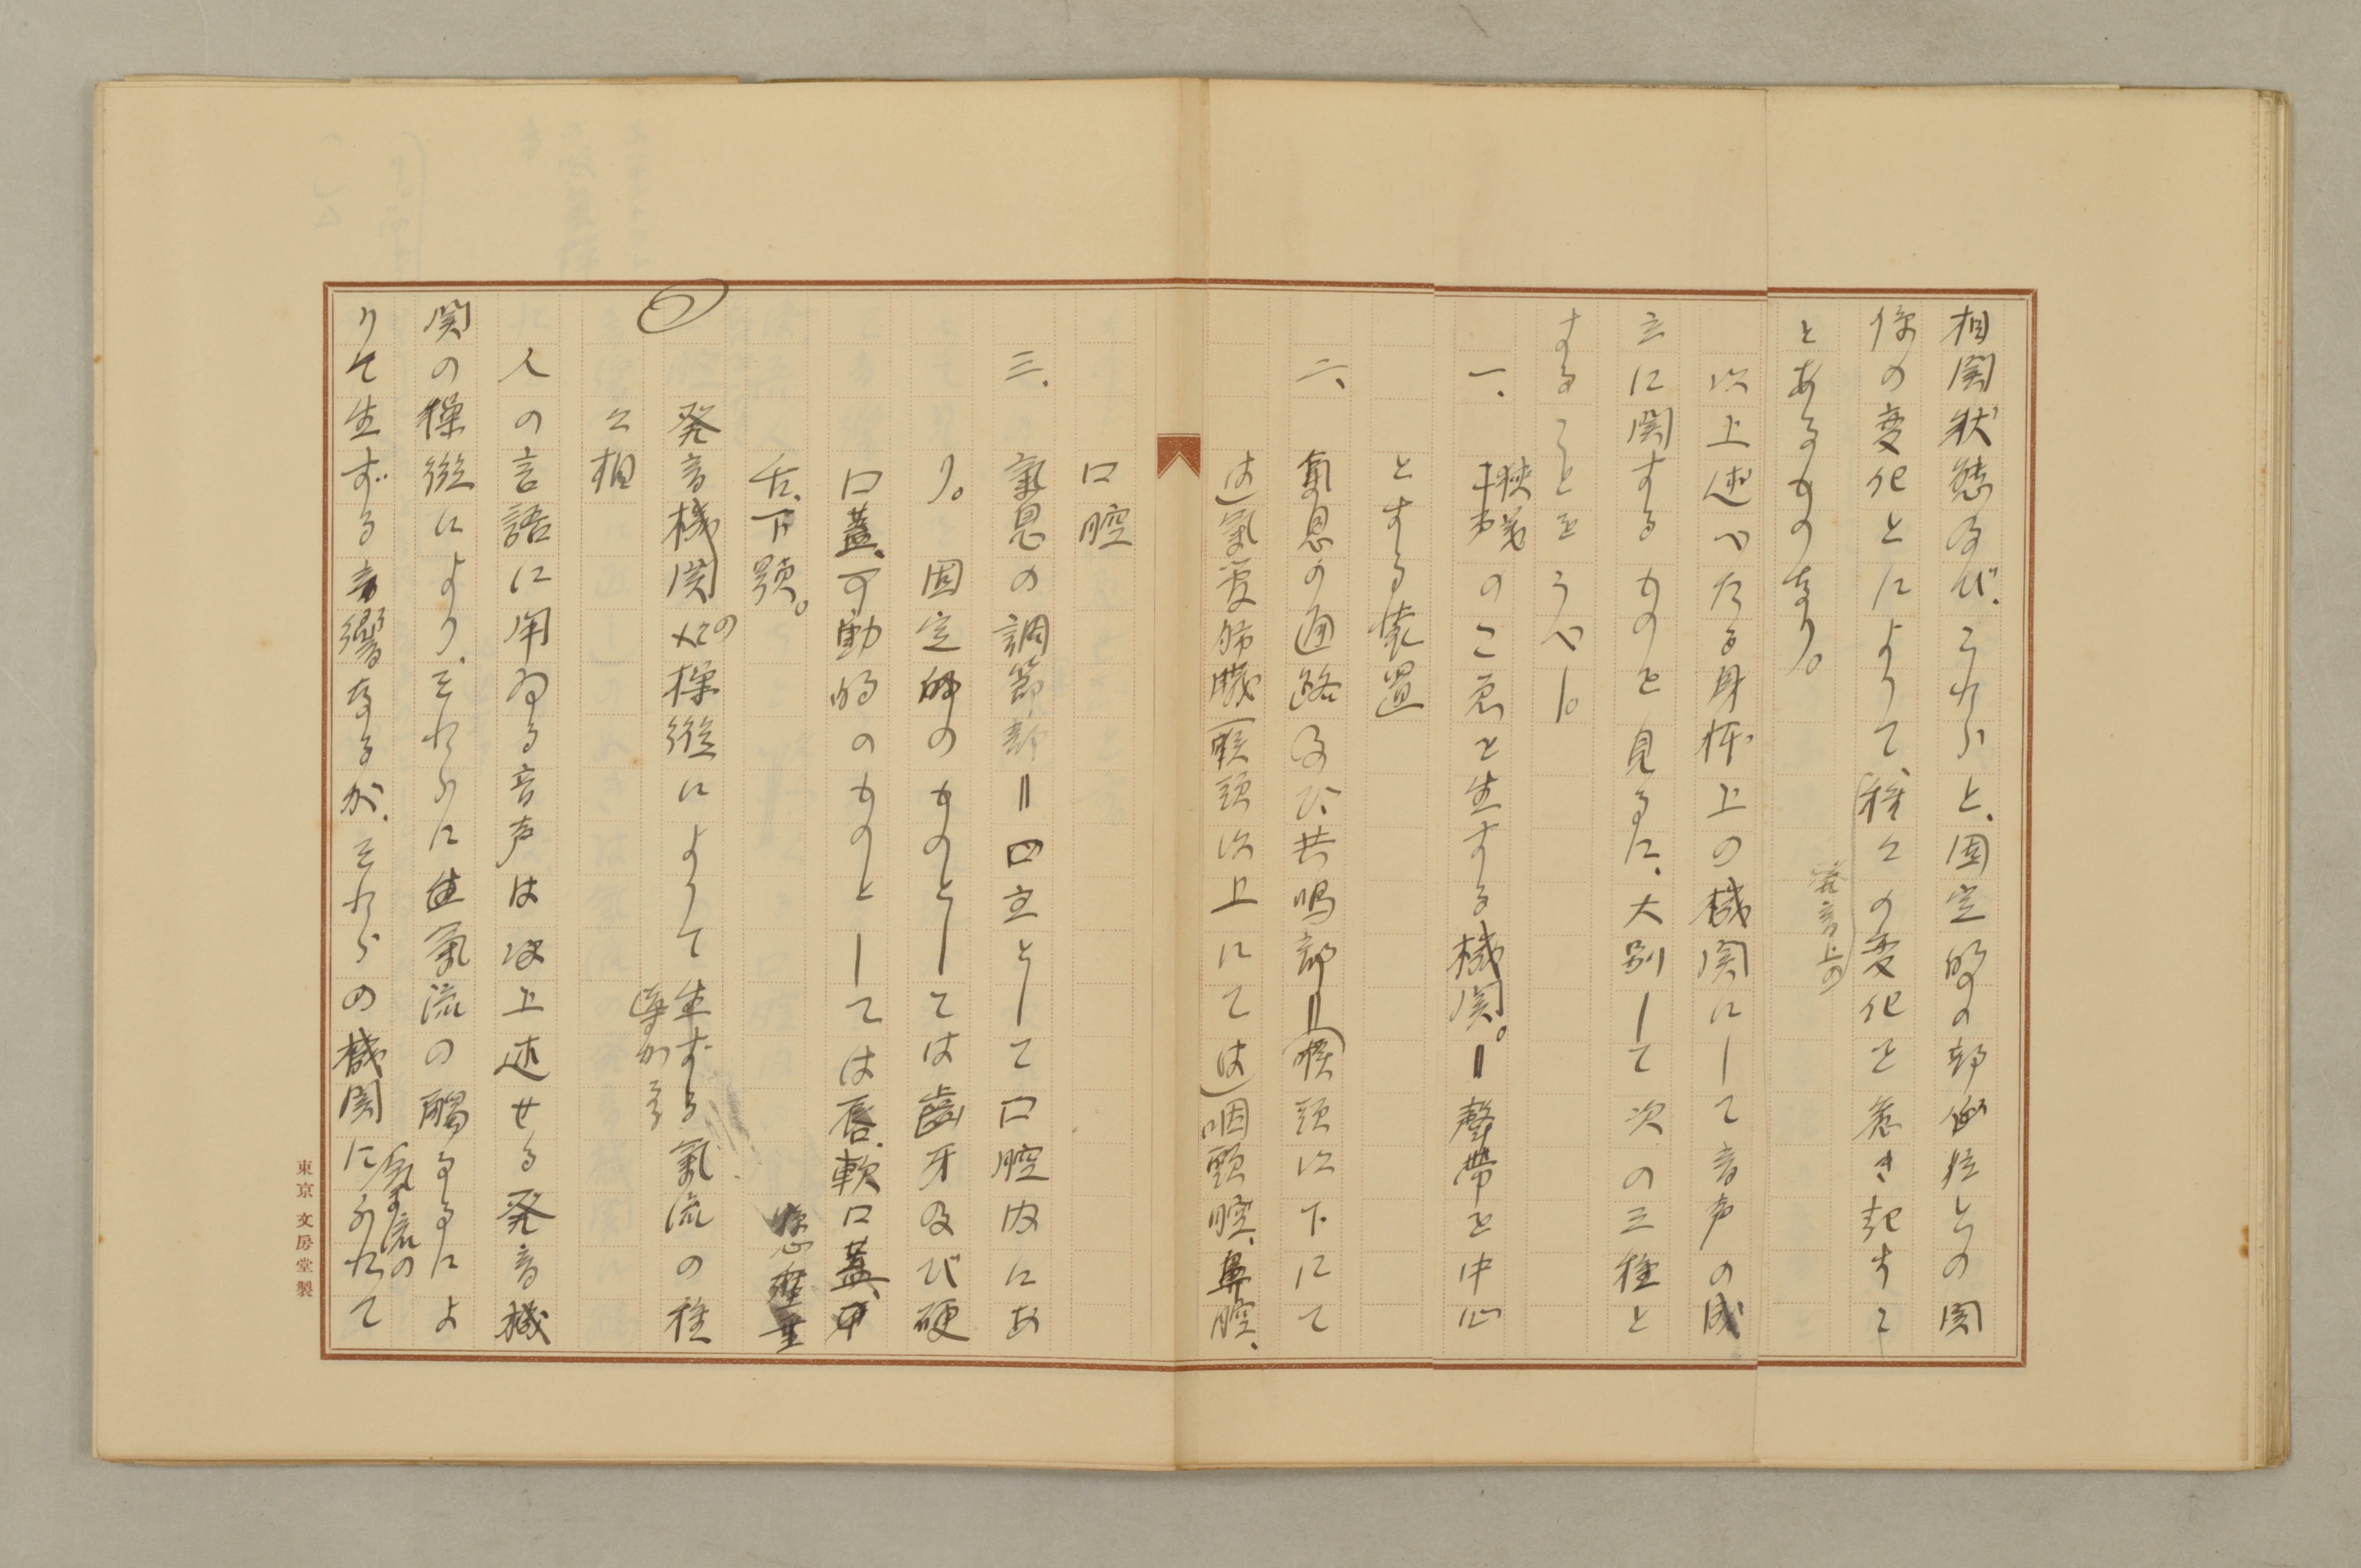 相関状態及び、これらと、固定的の部位との関
係の変化とによりて、種々の変化を惹き起すこ
発音上の
とあるものなり。
以上述べたる身体上の機関にして音声の成
立に関するものを見るに、大別して次の三種と
することをうべし。
一、狭義のこゑを生する機関。＝聲帯を中心
とする装置
二、氣息の通路及び共鳴部＝(喉頭以下にて
は)氣管肺臓(喉頭以上にては)咽頭腔、鼻腔、
口腔
三、氣息の調節部＝口主として口腔内にあ
り。固定的のものとしては歯牙及び硬
口蓋、可動的のものとしては唇、軟口蓋、
懸壅垂
舌、下顎。
発音機関の操縦によりて生ずる氣流の種
々相
人の言語に用ゐる音声は上述せる発音機
関の操縦により、それらに氣流の触るるによ
りて生ずる音響なるが、それらの機関にふれて
氣流の
東京 文房堂製